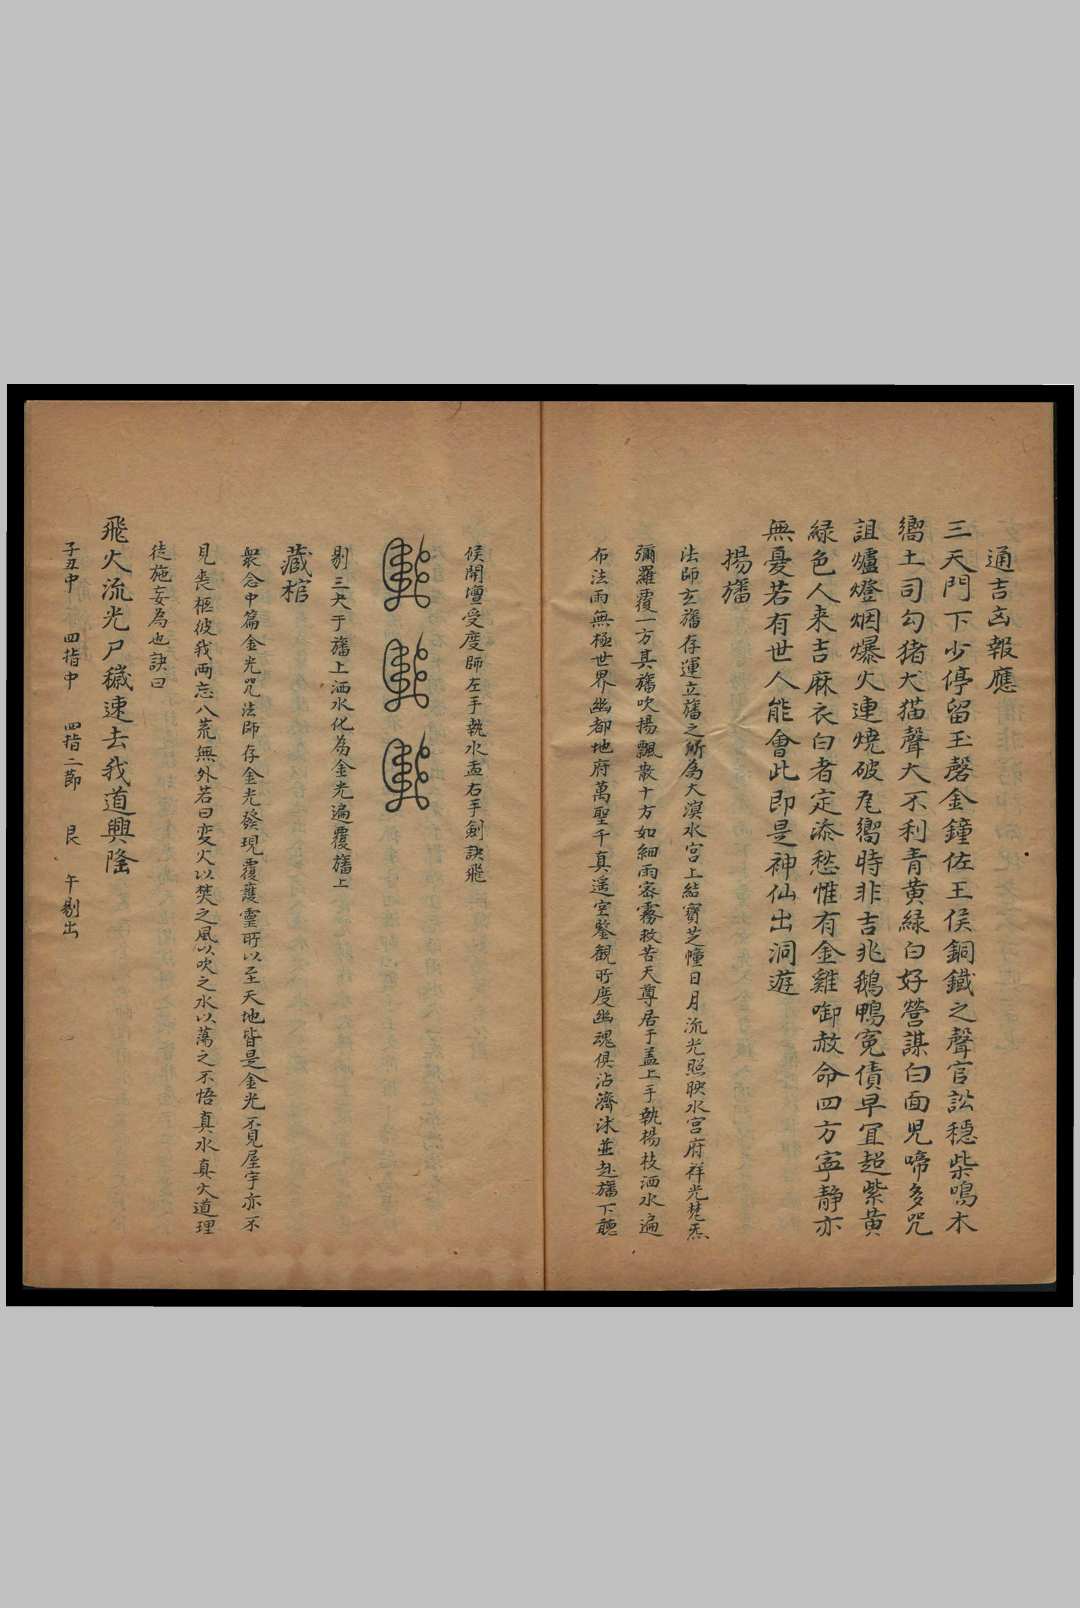 通吉凶報應
三天門下少停留玉磬金鐘佐王侯銅鐵之聲官訟穩柴鳴木
嚮土司勾猪犬猫聲大不利青黃緑白好營謀白面児啼多咒
詛爐燈烟爆火連燒破尾嚮時非吉兆鵝鴨寃債早宜超紫黄
緑色人来吉麻衣白者定添愁惟有金雞啣赦命四方寧静亦
無憂若有世人能會此即是神仙出洞遊
揚旛
法師玄旛存運立旛之所為大溟水宮上結寶芝幢日月流光照映水宮府祥光楚炁
彌羅覆一方其旛吹揚飄散十方如細雨宻霧救苦天尊居于盖上手執楊枝洒水遍
布法雨無極世界幽都地府萬聖千真遥空鑒観所度幽魂俱沾濟沐並赴旛下聽
候開壇受度師左手執水盂右手劍訣飛
剔三犬于旛上洒水化為金光遍覆旛上
藏棺
衆合中篇金光咒法師存金光發現覆護靈所以至天地皆是金光不見屋宇亦不
見喪柩彼我両忘八荒無外若曰変火以焚之風以吹之水以蕩之不悟真水真火道理
徒施妄為也訣曰
飛火流光尸穢速去我道興隆
子丑中 四指中 四指二節 艮 午剔出